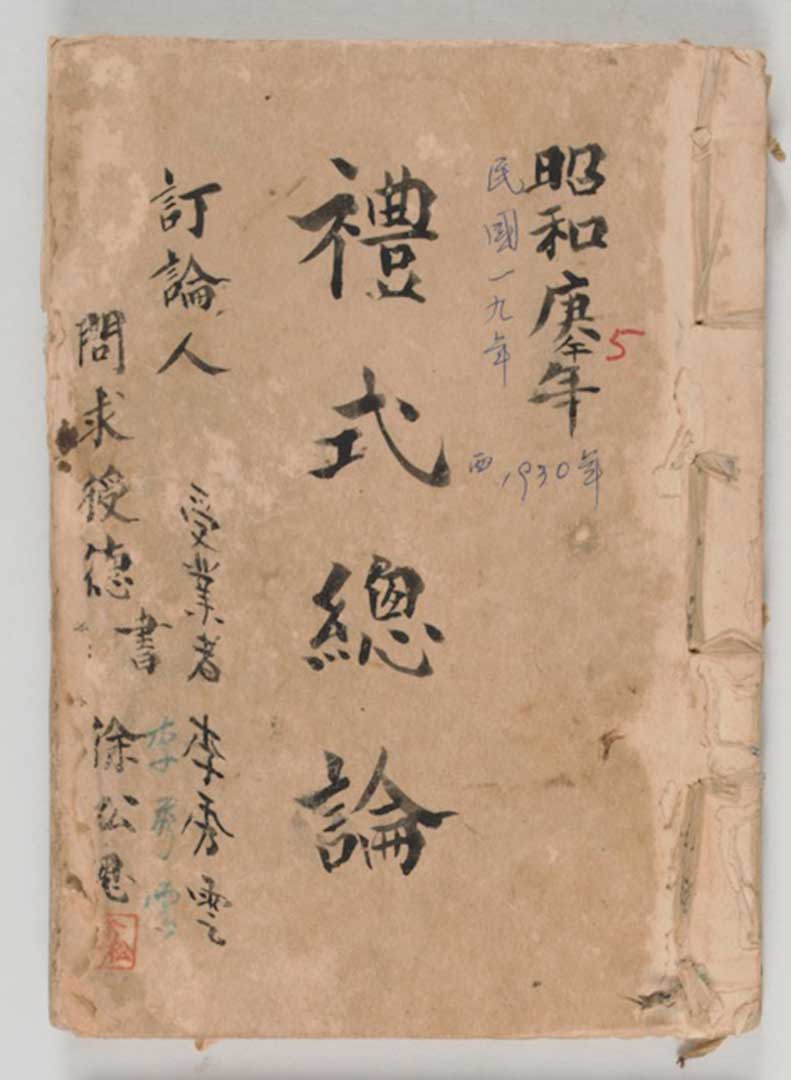 昭和庚午年
5
民國一九年
西1930年
禮式總論
訂論人
受業者 李秀雲
問求授德書
徐公